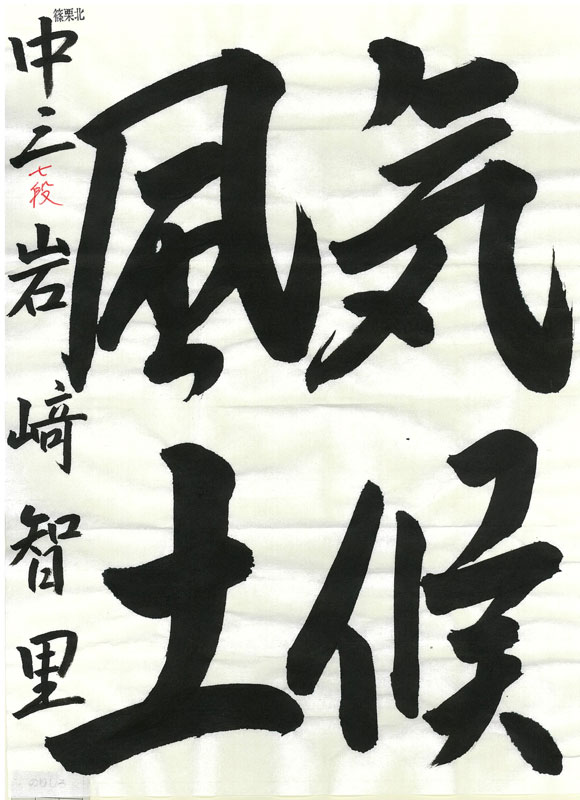 気候
風土
篠栗北
中三 岩﨑智里
七段